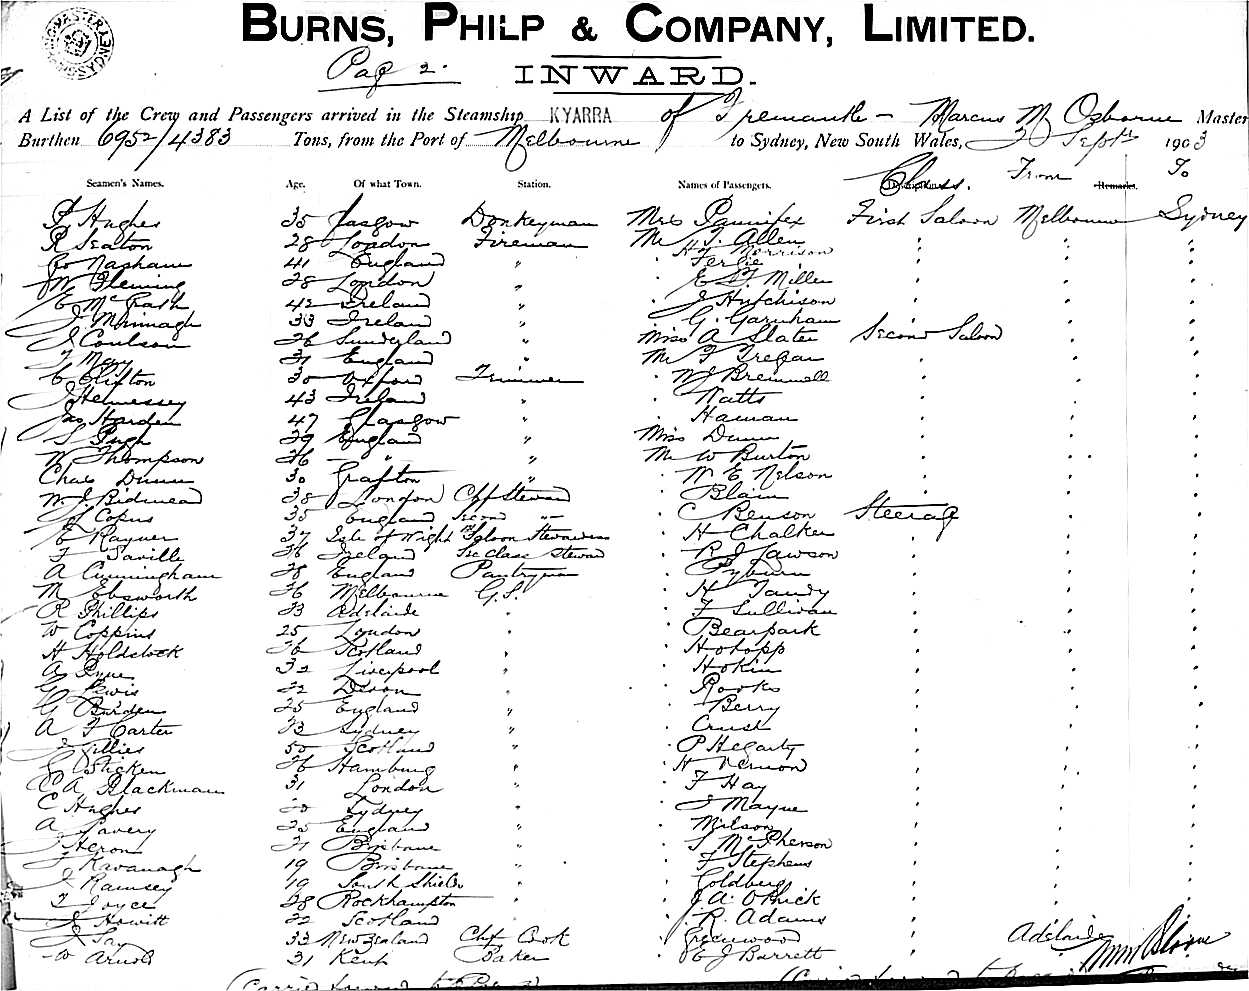 BURNS, PHILP & COMPANY, LIMITED.
Pag 2.
INWARD.
A List of the Crew and Passengers arrived in the Steamship KYARRA of Fremantle - Marcus M Osborne Master
Burthen 6952/4383 Tons, from the Port of Melbourne to Sydney, New South Wales, Sept 1903
Seamen's Names. Age. Of what Town. Station. Names of Passengers. Class. From Remarks. To
P Hughes 35 Glasgow Donkeyman Mrs Pannifex First Saloon Melbourne Sydney
R Seaton 28 London Fireman Mr T. Allen
41 England " H Y Morrison
Ferlie
W Fleming 28 London " E T. Miller
E McGrath 42 Ireland " J Hutchison
J. Minnagh 33 Ireland " G. Garnham
J Coulson 26 Sunderland " Miss A Slater Second Saloon
T Mary 31 England " Mr F Tregan
C Clifton 30 Oxford Trimmer W J Bremnell
J Hennessey 43 Ireland " Watts
Jas Harden 47 Glasgow " Haman
S Pugh 29 England " Miss Dunn
W Thompson 26 " " Mr W Burton
Chas Dunn 30 Grafton " W E Nelson
W J Bidmead 38 London Chf Steward Blain
J Copus 35 England Second " C Benson Steerag
E Rayner 37 Isle of Wight Saloon Stewardess H Chalker
F Saville 26 Ireland Sec Class Steward R J Lawson
A Cunningham 28 England Pantryman Pyburn
M Ebsworth 26 Melbourne G.S. H Tandy
R Phillips 23 Adelaide F Sullivan
W Coppins 25 London Bearpark
H Holdclock 26 Scotland Hotopp
A Pyne 32 Liverpool Hokin
G Lewis 22 Devon Rooks
G Burden 25 England Berry
A F Carter 23 Sydney Crush
J Gillies 50 Scotland P Hegarty
G Sticken 26 Hamburg H Vernon
C A Blackman 31 London F Hay
C Hughes 20 Sydney J Mayne
A Savery 25 England Milson
J Heron 21 Brisbane S McPherson
J Kavanagh 19 Brisbane F Stephens
J Ramsey 19 South Shields Goldberg
T Joyce 28 Rockhampton J A.
J Howitt 22 Scotland R. Adams
J Say 33 New Zealand Chf Cook Greenwood Adelaide
W Arnold 31 Kent Baker C J Barrett
(Carried forward to Page 3) (Carried forward to Page